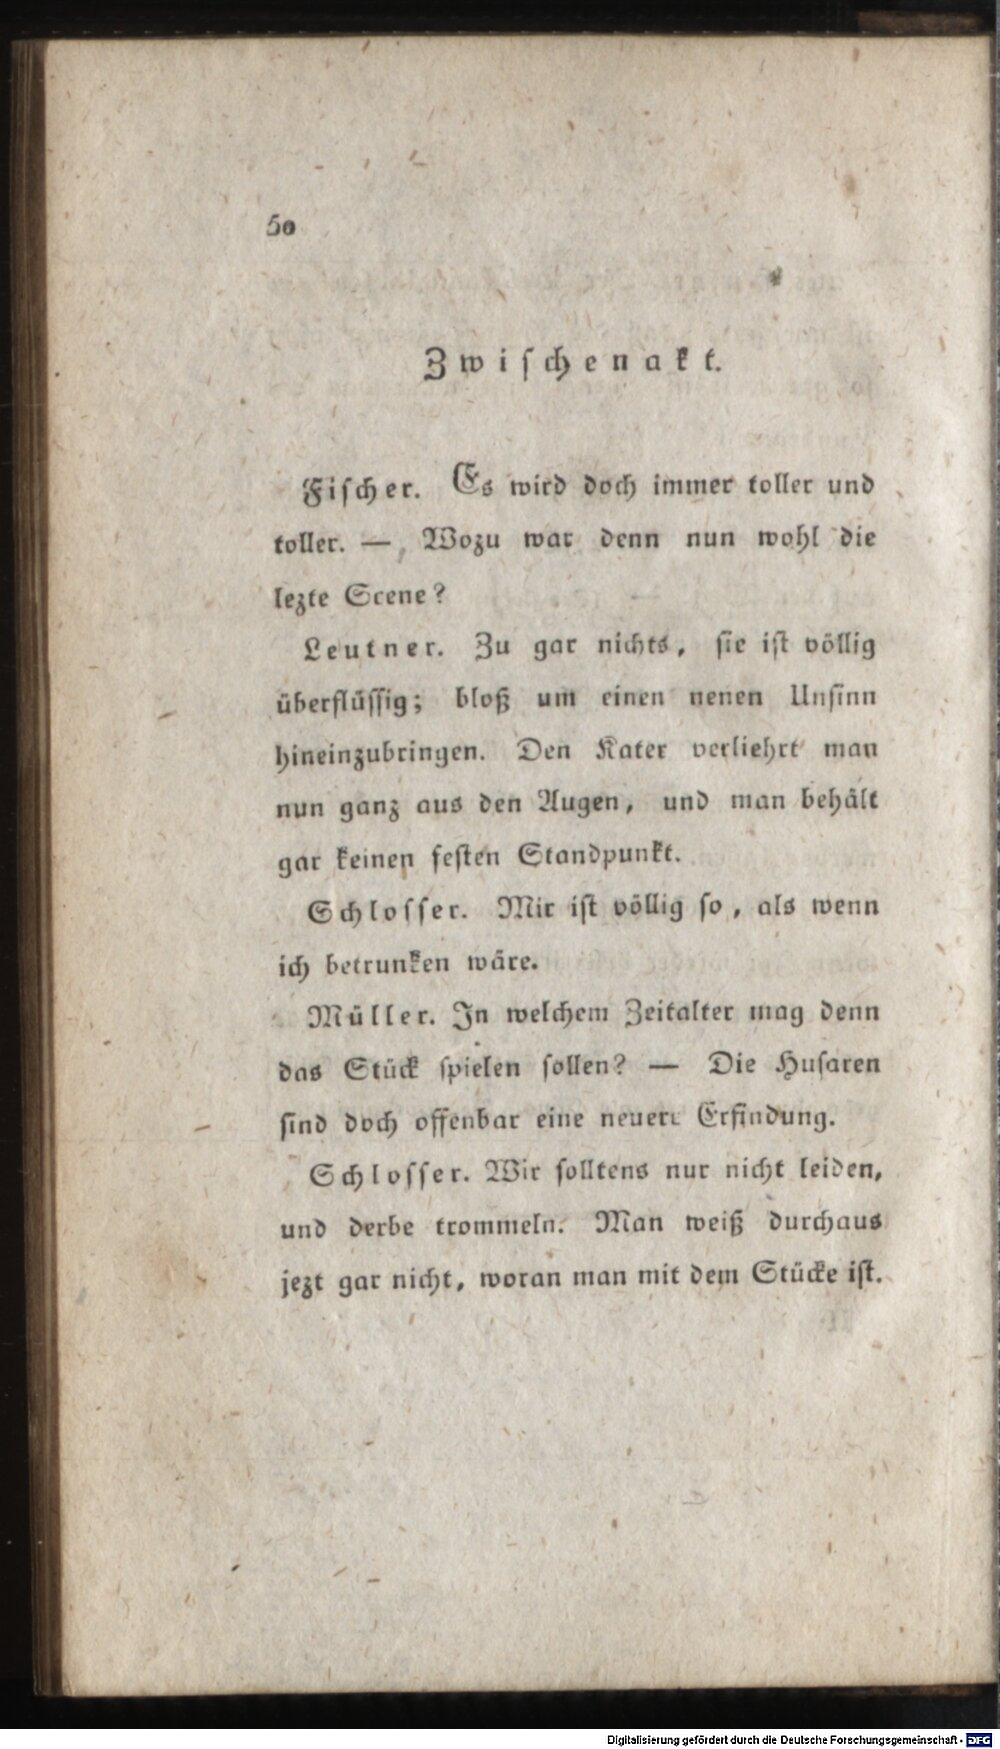 50
Zwischenakt.
Fischer. Es wird doch immer toller und
toller. — Wozu war denn nun wohl die
lezte Scene?
Leutner. Zu gar nichts, sie ist völlig
überflüssig; bloß um einen nenen Unsinn
hineinzubringen. Den Kater verliehrt man
nun ganz aus den Augen, und man behält
gar keinen festen Standpunkt.
Schlosser. Mir ist völlig so, als wenn
ich betrunken wäre.
Müller. In welchem Zeitalter mag denn
das Stück spielen sollen? — Die Husaren
sind doch offenbar eine neuere Erfindung.
Schlosser. Wir solltens nur nicht leiden,
und derbe trommeln. Man weiß durchaus
jezt gar nicht, woran man mit dem Stücke ist.
Digitalisierung gefördert durch die Deutsche Forschungsgemeinschaft - DFG